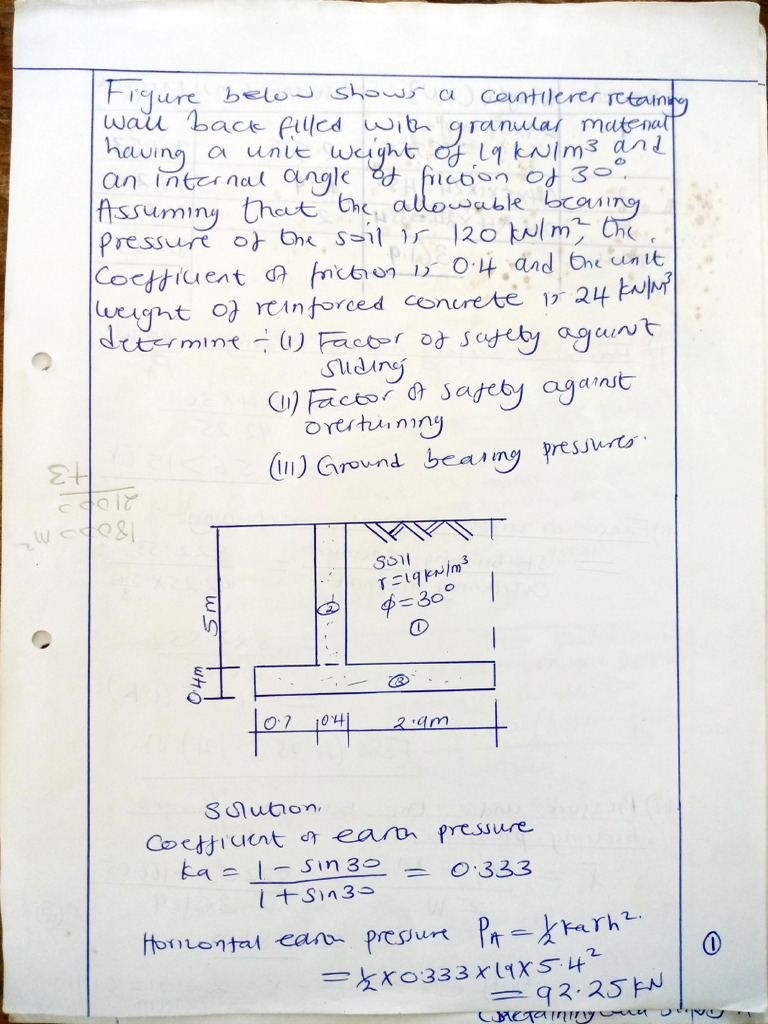 Figure below shows a cantilever retaining
wall back filled with granular material
having a unit weight of 19 kN/m3 and
an internal angle of friction of 30°.
Assuming that the allowable bearing
pressure of the soil is 120 kN/m2, the
coefficient of friction is 0.4 and the unit
weight of reinforced concrete is 24 kN/m3
determine :- (i) Factor of safety against
sliding
(ii) Factor of safety against
overturning
(iii) Ground bearing pressures.
+3
21000
18000 m2
soil
r=19kN/m3
φ=30°
①
②
③
5m
0.4m
0.7 0.4 2.9m
Solution.
Coefficient of earth pressure
ka = 1 - sin30 / 1 + sin30 = 0.333
Horizontal earth pressure PA = ½karh2.
= ½ x 0.333 x 19 x 5.42
= 92.25 kN
①